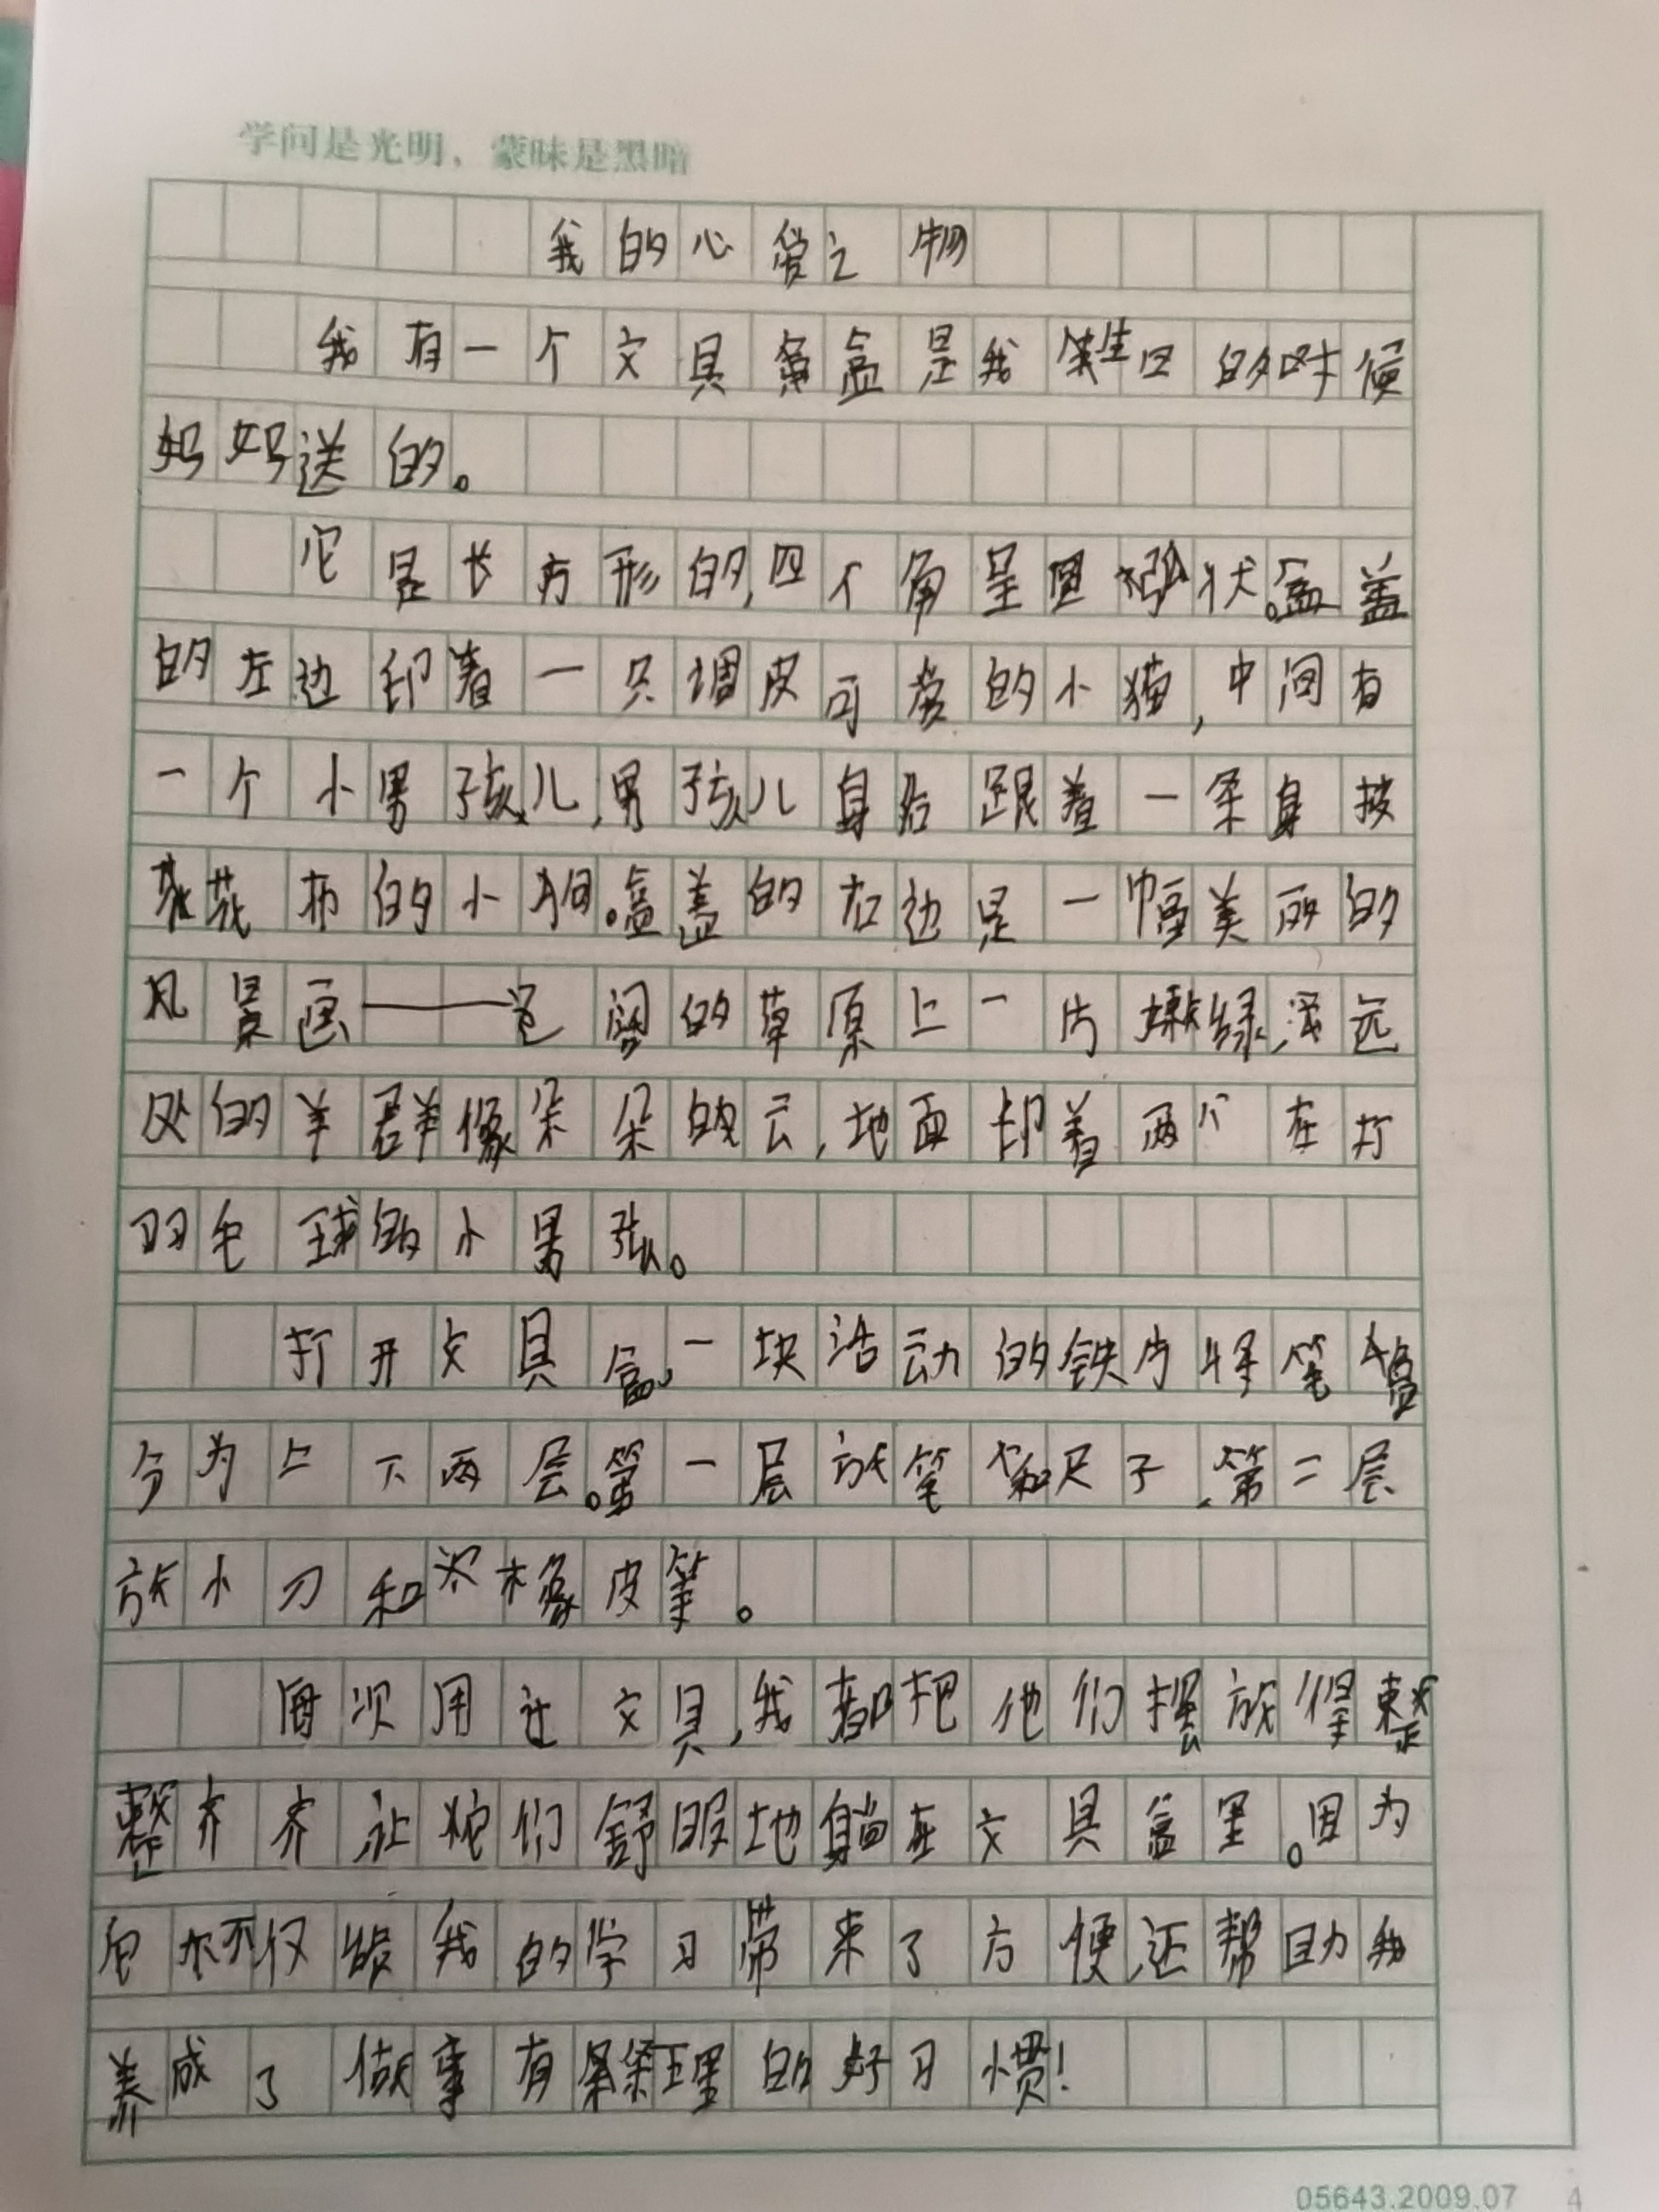 学问是光明，蒙昧是黑暗
我的心爱之物
我有一个文具盒是我生日的时候
妈妈送的。
它是长方形的,四个角呈弧状。盒盖
的左边印着一只调皮可爱的小猫,中间有
一个小男孩儿,男孩儿身后跟着一条身披
花布的小狗。盒盖的右边是一幅美丽的
风景画——阔的草原上一片嫩绿,远
处的羊群像朵朵的云,地面印着两个在打
羽毛球的小男孩。
打开文具盒,一块活动的铁片将笔
分为上下两层。第一层放笔和尺子,第二层
放小刀和橡皮等。
每次用过文具,我都把他们摆放得整
整齐齐,让它们舒服地躺在文具盒里。因为
它不仅能我的学习带来了方便,还帮助我
养成了做事有条理的好习惯!
05643.2009.07 4